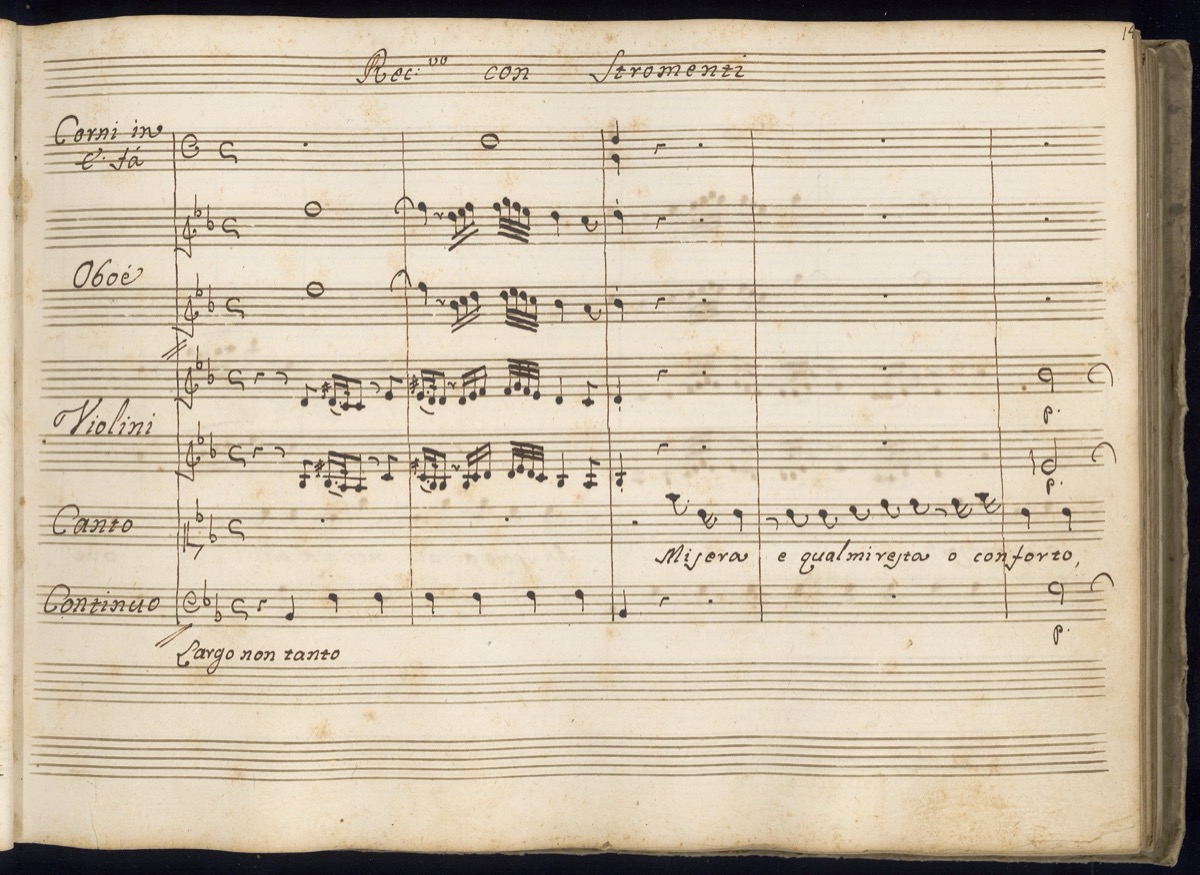 Rec:vo con Stromenti
Corni in
E. fá
Oboè
Violini
p.
p.
Canto
Misera e qual mi resta o conforto,
Continuo
p.
Largo non tanto